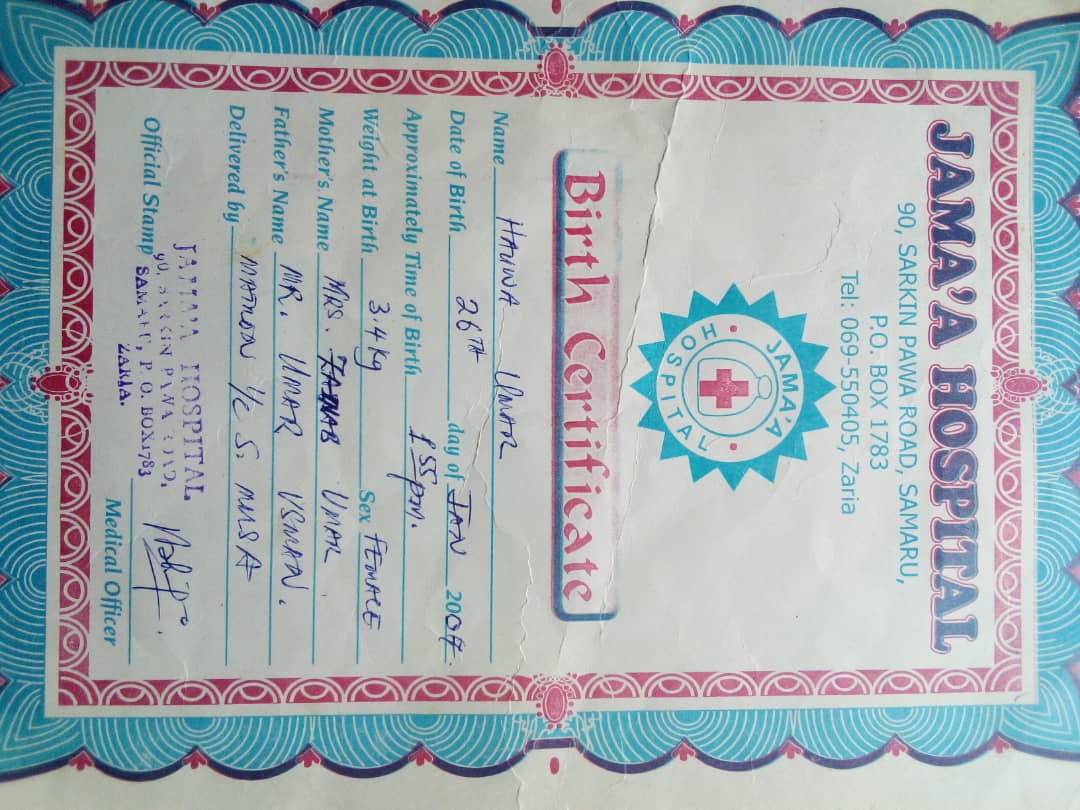 JAMA'A HOSPITAL
90, SARKIN PAWA ROAD, SAMARU,
P.O. BOX 1783
Tel: 069-550405, Zaria
JAMA'A
HOSPITAL
Birth Certificate
Name HAUWA UMAR
Date of Birth 26TH day of JAN 2004.
Approximately Time of Birth 1 55pm.
Weight at Birth 3.4kg Sex FEMALE
Mother's Name MRS. ZAINAB UMAR
Father's Name MR. UMAR USMAN.
Delivered by MATRON I/C S. MUSA
Official Stamp
JAMAA HOSPITAL
90, SARKIN PAWA ROAD,
SAMARU, P. O. BOX1783
ZARIA.
Medical Officer